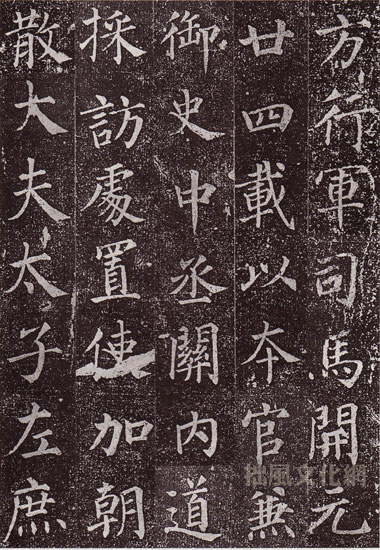 方行軍司馬開元
廿四載以本官兼
御史中丞關內道
採訪處置使加朝
散大夫太子左庶
拙風文化網